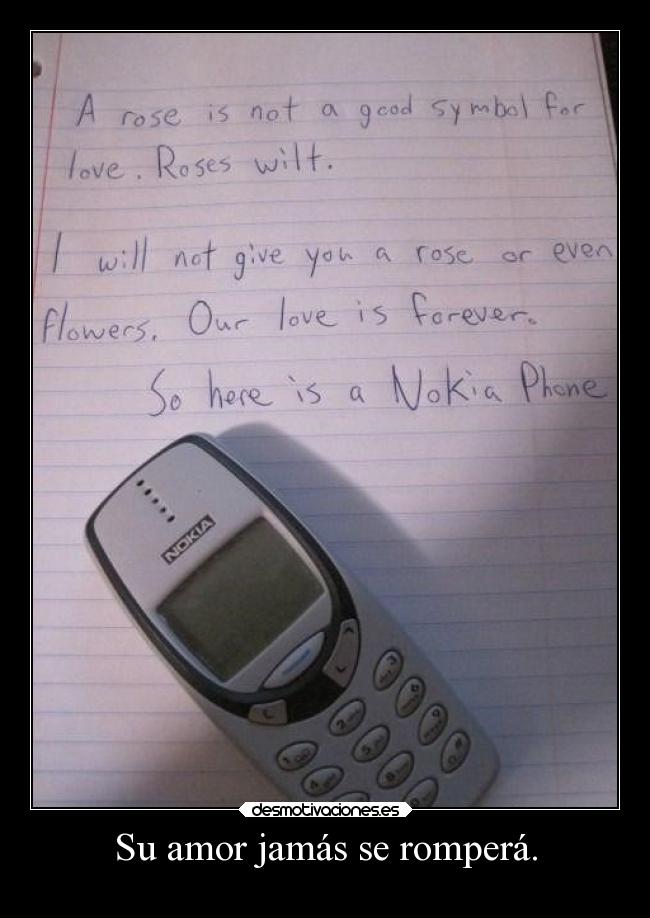 A rose is not a good symbol for
love. Roses wilt.
I will not give you a rose or even
flowers. Our love is forever.
So here is a Nokia Phone
NOKIA
C
1
2
3
4
5
6
8
9
#
desmotivaciones.es
Su amor jamás se romperá.